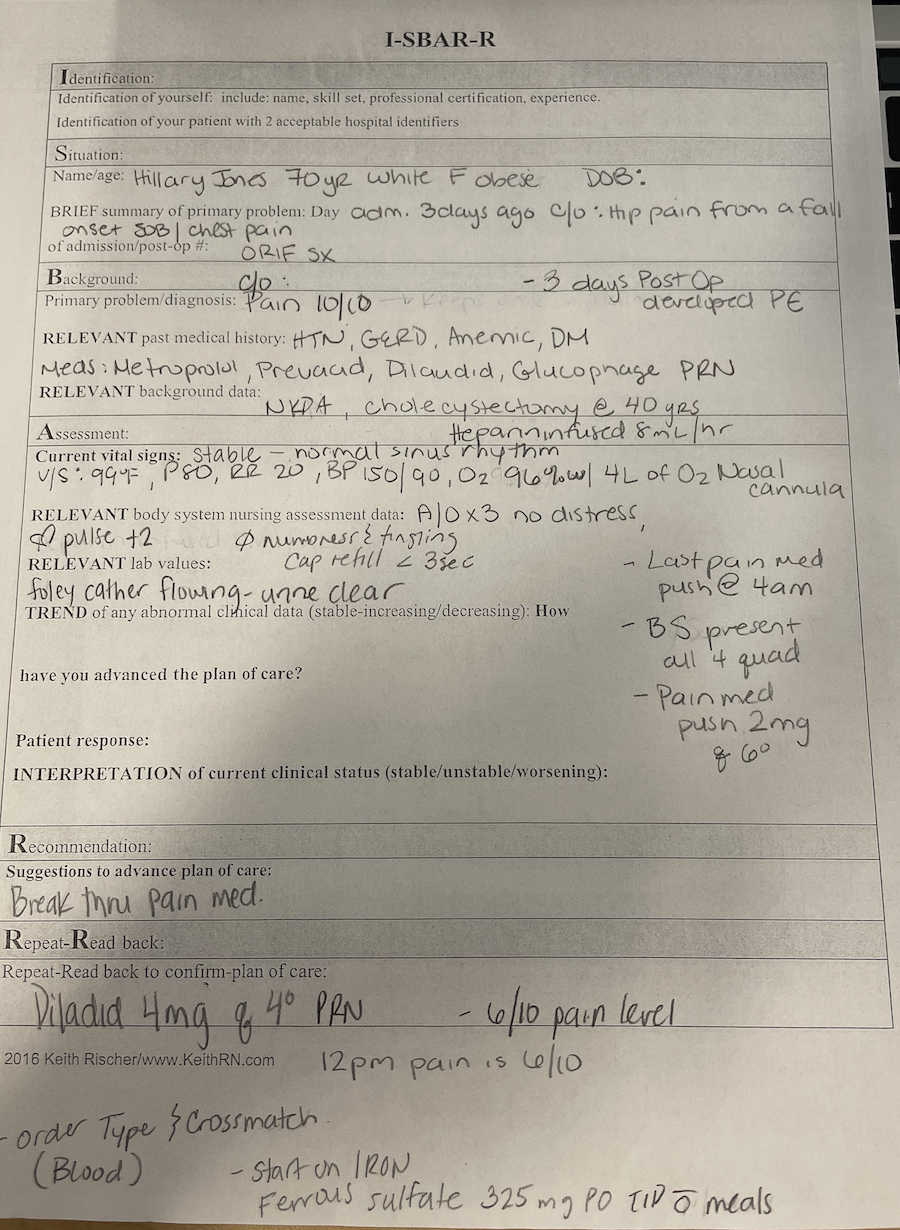 I-SBAR-R
Identification:
Identification of yourself: include: name, skill set, professional certification, experience.
Identification of your patient with 2 acceptable hospital identifiers
Situation:
Name/age: Hillary Jones 70yr White F obese DOB:
BRIEF summary of primary problem: Day adm. 3days ago c/o: Hip pain from a fall
onset SOB | chest pain
of admission/post-op #: ORIF SX
Background: c/o: - 3 days Post Op
Primary problem/diagnosis: Pain 10/10 developed PE
RELEVANT past medical history: HTN, GERD, Anemic, DM
Meds: Metroprolol, Prevacid, Dilaudid, Glucophage PRN
RELEVANT background data:
NKDA, cholecystectomy @ 40 yrs
Assessment: Heparin infused 8mL/hr
Current vital signs: Stable - normal sinus rhythm
V/S: 99°F, P80, RR 20, BP 150/90, O2 96% w/ 4L of O2 Nasal
cannula
RELEVANT body system nursing assessment data: A/O x3 no distress,
pulse +2 Ø numbness & tingling
RELEVANT lab values: Cap refill < 3sec - Last pain med
foley cather flowing - urine clear push @ 4am
TREND of any abnormal clinical data (stable-increasing/decreasing): How
- BS present
all 4 quad
have you advanced the plan of care?
- Pain med
push 2mg
Patient response:
q 6°
INTERPRETATION of current clinical status (stable/unstable/worsening):
Recommendation:
Suggestions to advance plan of care:
Break thru pain med.
Repeat-Read back:
Repeat-Read back to confirm-plan of care:
Diladid 4mg q 4° PRN - 6/10 pain level
2016 Keith Rischer/www.KeithRN.com 12pm pain is 6/10
- order Type & Crossmatch
(Blood) - Start on IRON
Ferrous sulfate 325 mg PO TID meals